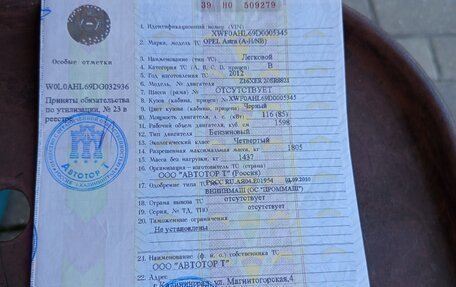 39 НО 509279
1. Идентификационный номер (VIN) XWF0AHL69D0005345
2. Марка, модель ТС OPEL Astra (A-H/NB)
3. Наименование (тип ТС) Легковой
4. Категория ТС (A, B, C, D, прицеп) B
5. Год изготовления ТС 2012
6. Модель, № двигателя Z16XER 20SR8824
7. Шасси (рама) № ОТСУТСТВУЕТ
8. Кузов (кабина, прицеп) № XWF0AHL69D0005345
9. Цвет кузова (кабины, прицепа) Черный
10. Мощность двигателя, л. с. (кВт) 116 (85)
11. Рабочий объем двигателя, куб. см 1598
12. Тип двигателя Бензиновый
13. Экологический класс Четвертый
14. Разрешенная максимальная масса, кг 1805
15. Масса без нагрузки, кг 1437
16. Организация-изготовитель ТС (страна)
ООО "АВТОТОР Т" (Россия)
17. Одобрение типа ТС № РОСС RU.АЯ04.Е01954 03.09.2010
ВНИИНМАШ (ОС "ПРОММАШ")
18. Страна вывоза ТС отсутствует
19. Серия, № ТД, ТПО отсутствует
20. Таможенные ограничения
Не установлены
21. Наименование (ф. и. о.) собственника ТС
ООО "АВТОТОР Т"
22. Адрес
г.Калининград, ул. Магнитогорская,4
Особые отметки
W0L0AHL69DG032936
Приняты обязательства
по утилизации, № 23 в
реестре
АВТОТОР